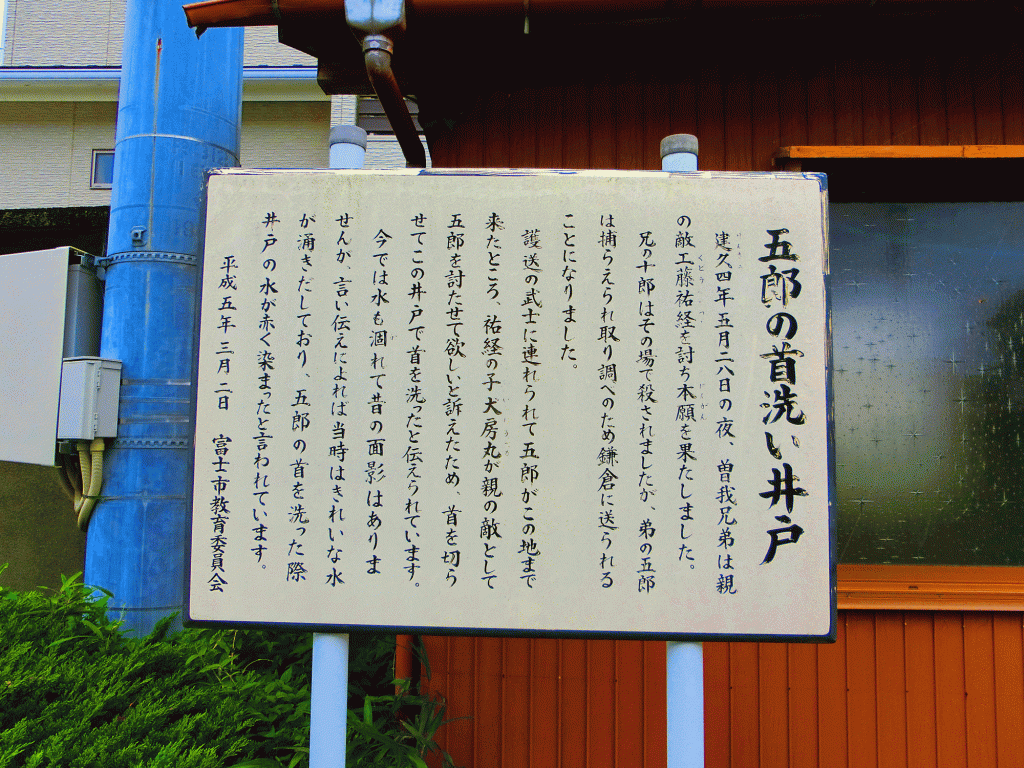 五郎の首洗い井戸
建久四年五月二八日の夜、曽我兄弟は親
の敵工藤祐経を討ち本願を果たしました。
兄の十郎はその場で殺されましたが、弟の五郎
は捕らえられ取り調べのため鎌倉に送られる
ことになりました。
護送の武士に連れられて五郎がこの地まで
来たところ、祐経の子犬房丸が親の敵として
五郎を討たせて欲しいと訴えたため、首を切ら
せてこの井戸で首を洗ったと伝えられています。
今では水も涸れて昔の面影はありま
せんが、言い伝えによれば当時はきれいな水
が涌きだしており、五郎の首を洗った際
井戸の水が赤く染まったと言われています。
平成五年三月二日 富士市教育委員会